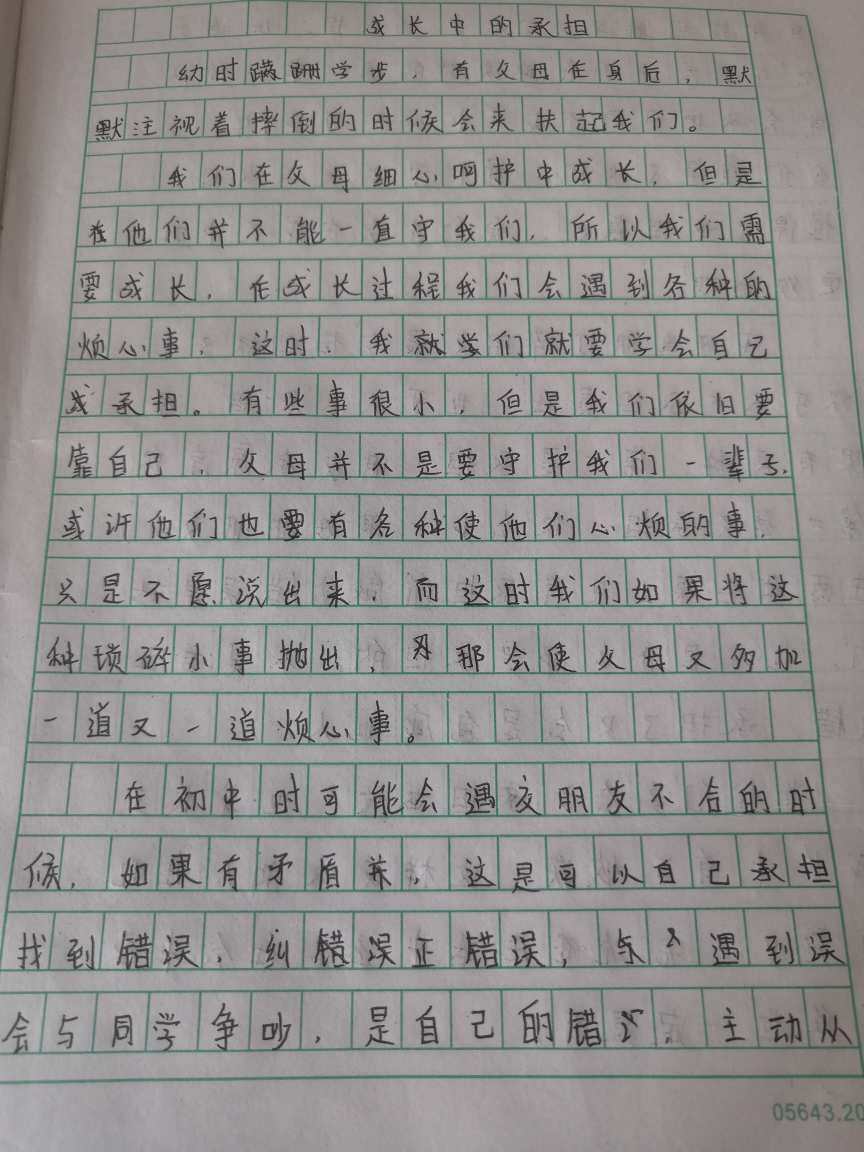 成长中的承担
幼时蹒跚学步，有父母在身后，默
默注视着摔倒的时候会来扶起我们。
我们在父母细心呵护中成长，但是
在他们并不能一直守我们，所以我们需
要成长，在成长过程我们会遇到各种的
烦心事，这时，我就学们就要学会自己
成承担。有些事很小，但是我们依旧要
靠自己，父母并不是要守护我们一辈子，
或许他们也要有各种使他们心烦的事，
只是不愿说出来，而这时我们如果将这
种琐碎小事抛出，那会使父母又多加
一道又一道烦心事。
在初中时可能会遇交朋友不合的时
候，如果有矛盾，这是可以自己承担
找到错误，纠错误正错误，与遇到误
会与同学争吵，是自己的错，主动从
05643.20